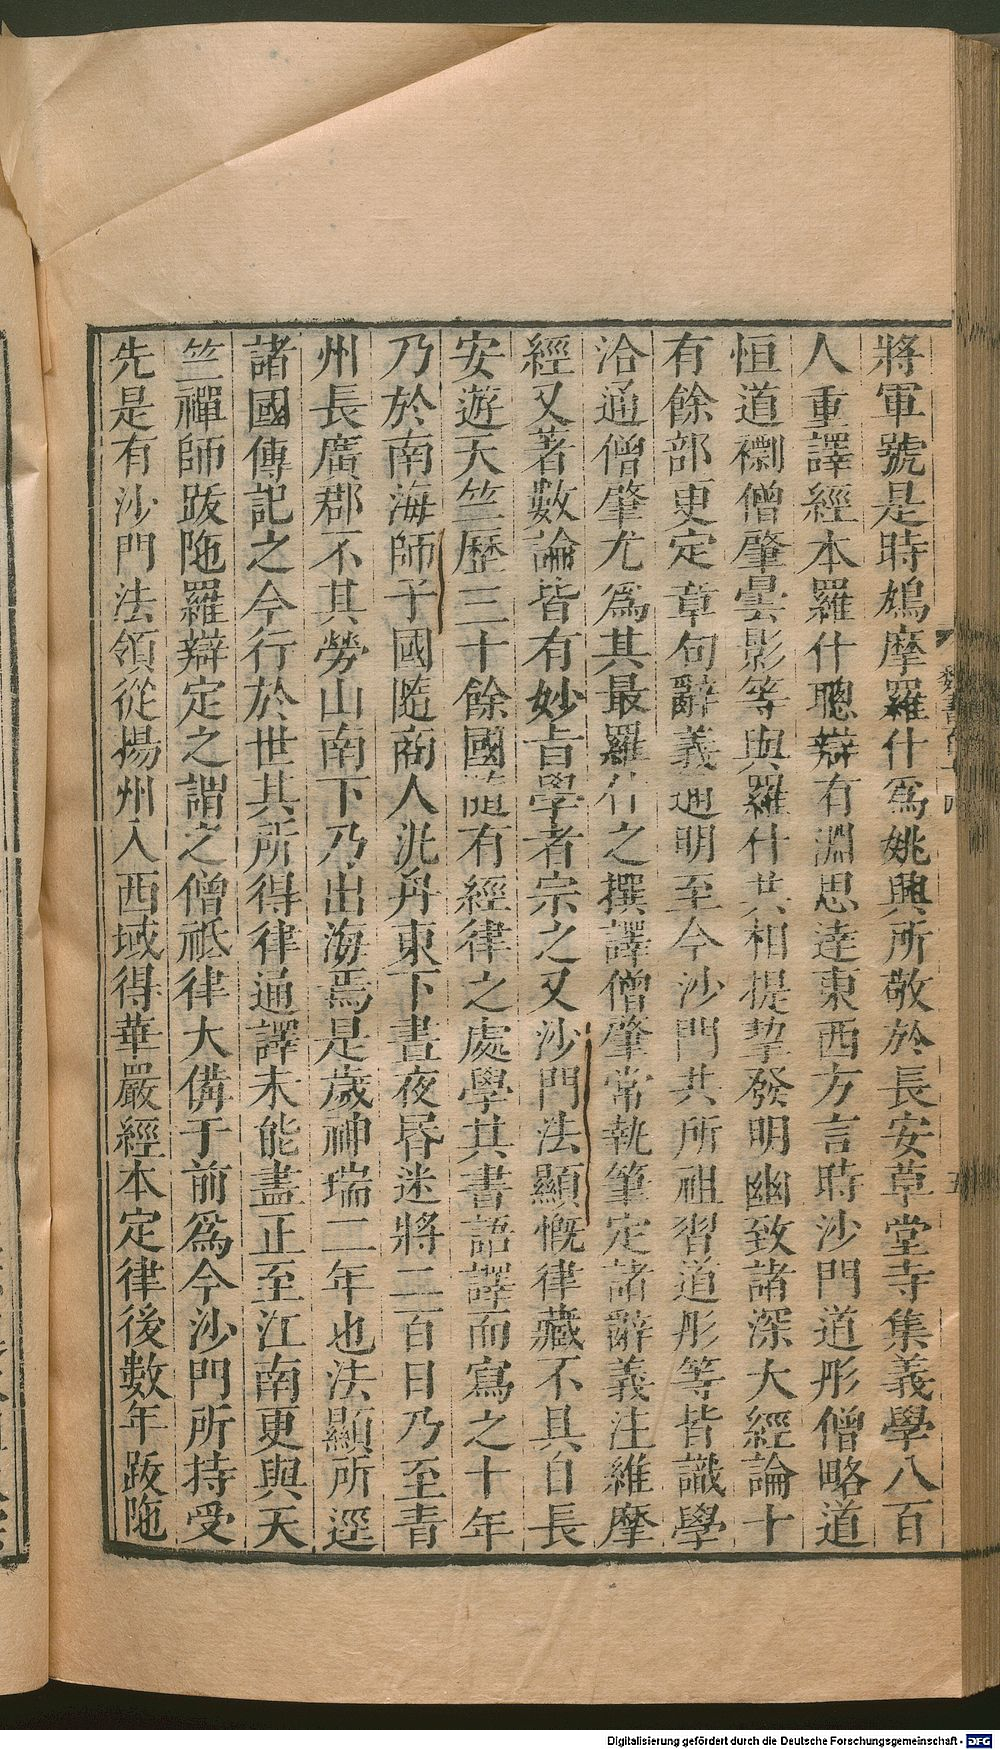 將軍號是時鳩摩羅什爲姚興所敬於長安草堂寺集義學八百
人重譯經本羅什聰辯有淵思達東西方言時沙門道彤僧略道
恒道𧝓僧肇曇影等與羅什共相提挈發明幽致諸深大經論十
有餘部更定章句辭義通明至今沙門共所祖習道彤等皆識學
洽通僧肇尤爲其最羅什之撰譯僧肇常執筆定諸辭義注維摩
經又著數論皆有妙旨學者宗之又沙門法顯慨律藏不具自長
安遊天竺歷三十餘國隨有經律之處學其書語譯而寫之十年
乃於南海師子國隨商人汎舟東下晝夜昏迷將二百日乃至青
州長廣郡不其勞山南下乃出海焉是歲神瑞二年也法顯所逕
諸國傳記之今行於世其所得律通譯未能盡正至江南更與天
竺禪師跋陁羅辯定之謂之僧祗律大備于前爲今沙門所持受
先是有沙門法領從揚州入西域得華嚴經本定律後數年跋陁
Digitalisierung gefördert durch die Deutsche Forschungsgemeinschaft - DFG